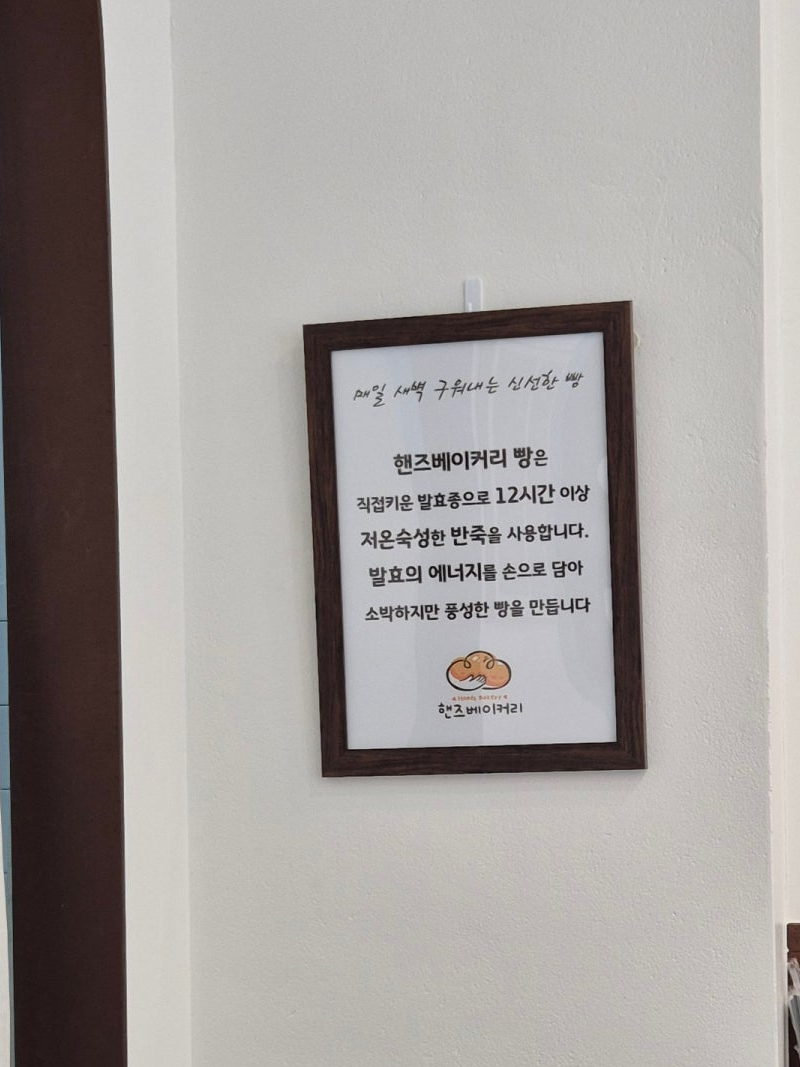 매일 새벽 구워내는 신선한 빵
핸즈베이커리 빵은
직접키운 발효종으로 12시간 이상
저온숙성한 반죽을 사용합니다.
발효의 에너지를 손으로 담아
소박하지만 풍성한 빵을 만듭니다
Hands Bakery
핸즈베이커리